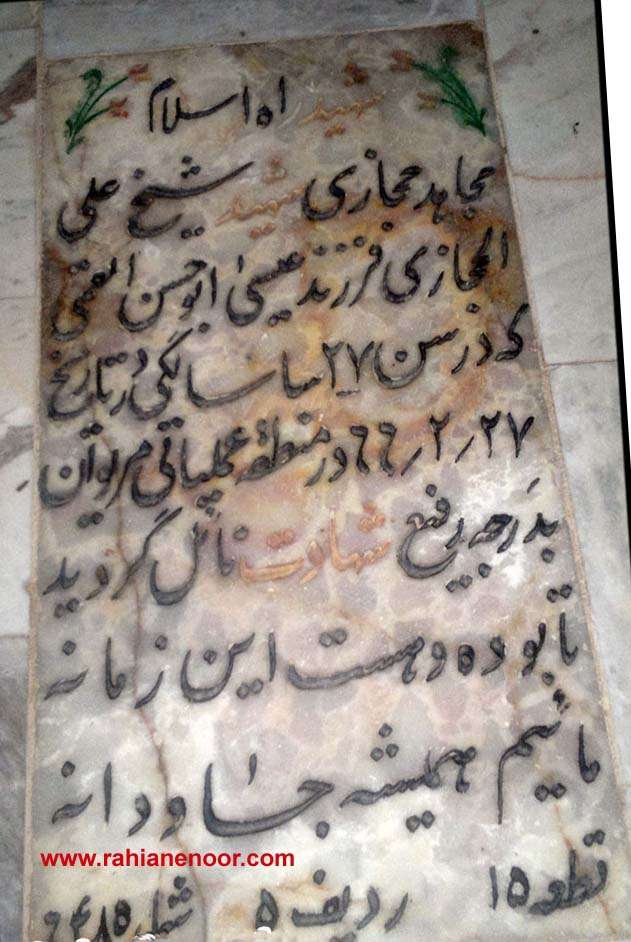 شهید راه اسلام
مجاهد حجازی شهید شیخ علی
الحجازی فرزند عیسیٰ ابوحسن القمی
که در سن ۲۷ سا سالگی در تاریخ
۲۷٫۲٫۶۶ در منطقهٔ عملیاتی مریوان
بدرجه رفیع شهادت نائل گردید
تا بوده و هست این زمانه
مائیم همیشه جاودانه
www.rahianenoor.com
قطعه ۱۵ ردیف ۵ شماره